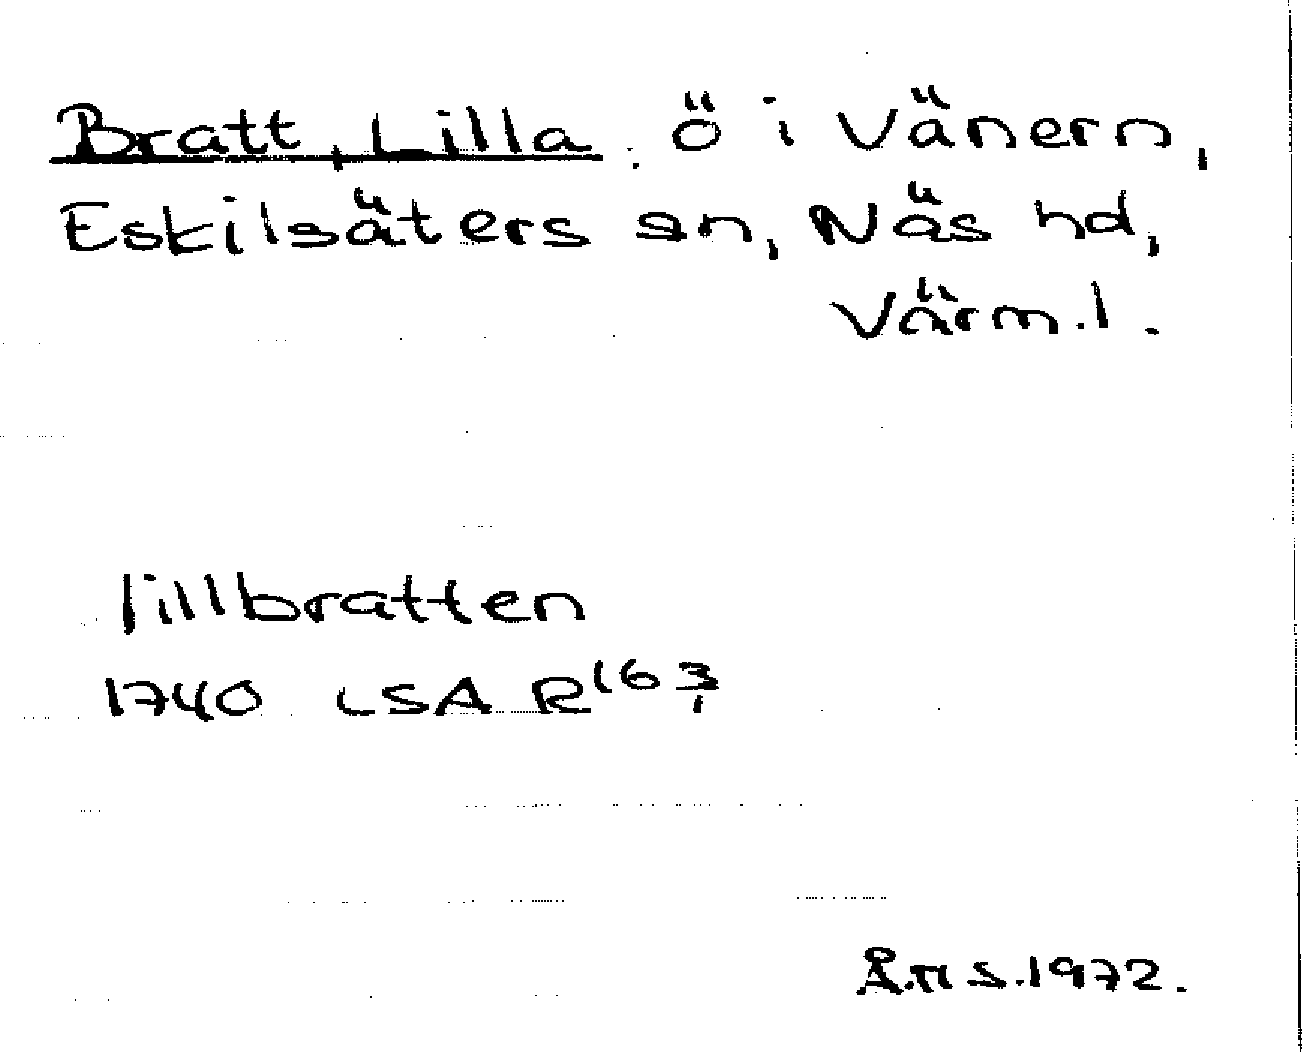 Bratt, Lilla. ö i Vänern,
Eskilsäters sn, Näs hd,
Värm.l.
lillbratten
1740 LSA R16 3/1
Å.N S.1972.